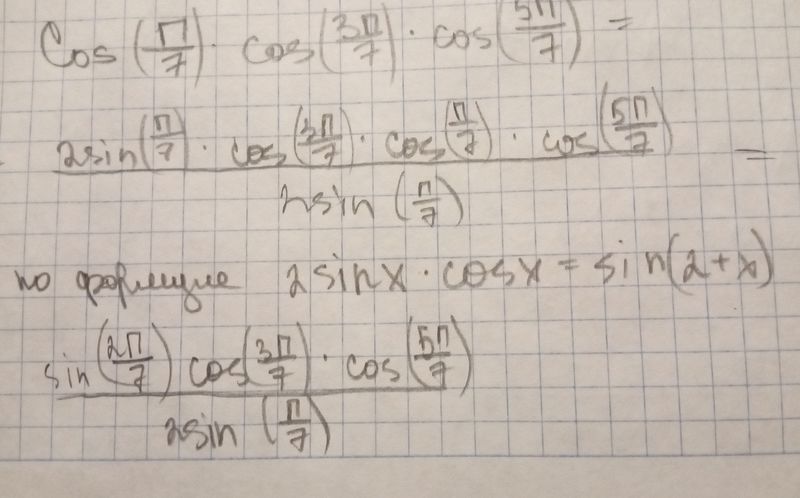 Cos(π/7) · cos(3π/7) · cos(5π/7) =
2sin(π/7) · cos(3π/7) · cos(π/7) · cos(5π/7) / 2sin(π/7) =
по формуле 2sinx · cosx = sin(2+x)
sin(2π/7) cos(3π/7) · cos(5π/7) / 2sin(π/7)